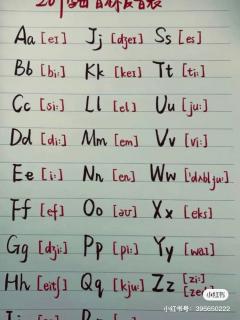 Aa [eɪ] Jj [dʒeɪ] Ss [es]
Bb [biː] Kk [keɪ] Tt [tiː]
Cc [siː] Ll [el] Uu [juː]
Dd [diː] Mm [em] Vv [viː]
Ee [iː] Nn [en] Ww ['dʌbljuː]
Ff [ef] Oo [əʊ] Xx [eks]
Gg [dʒiː] Pp [piː] Yy [waɪ]
Hh [eɪtʃ] Qq [kjuː] Zz [ziː]
[zed]
小红书
小红书号：395650222